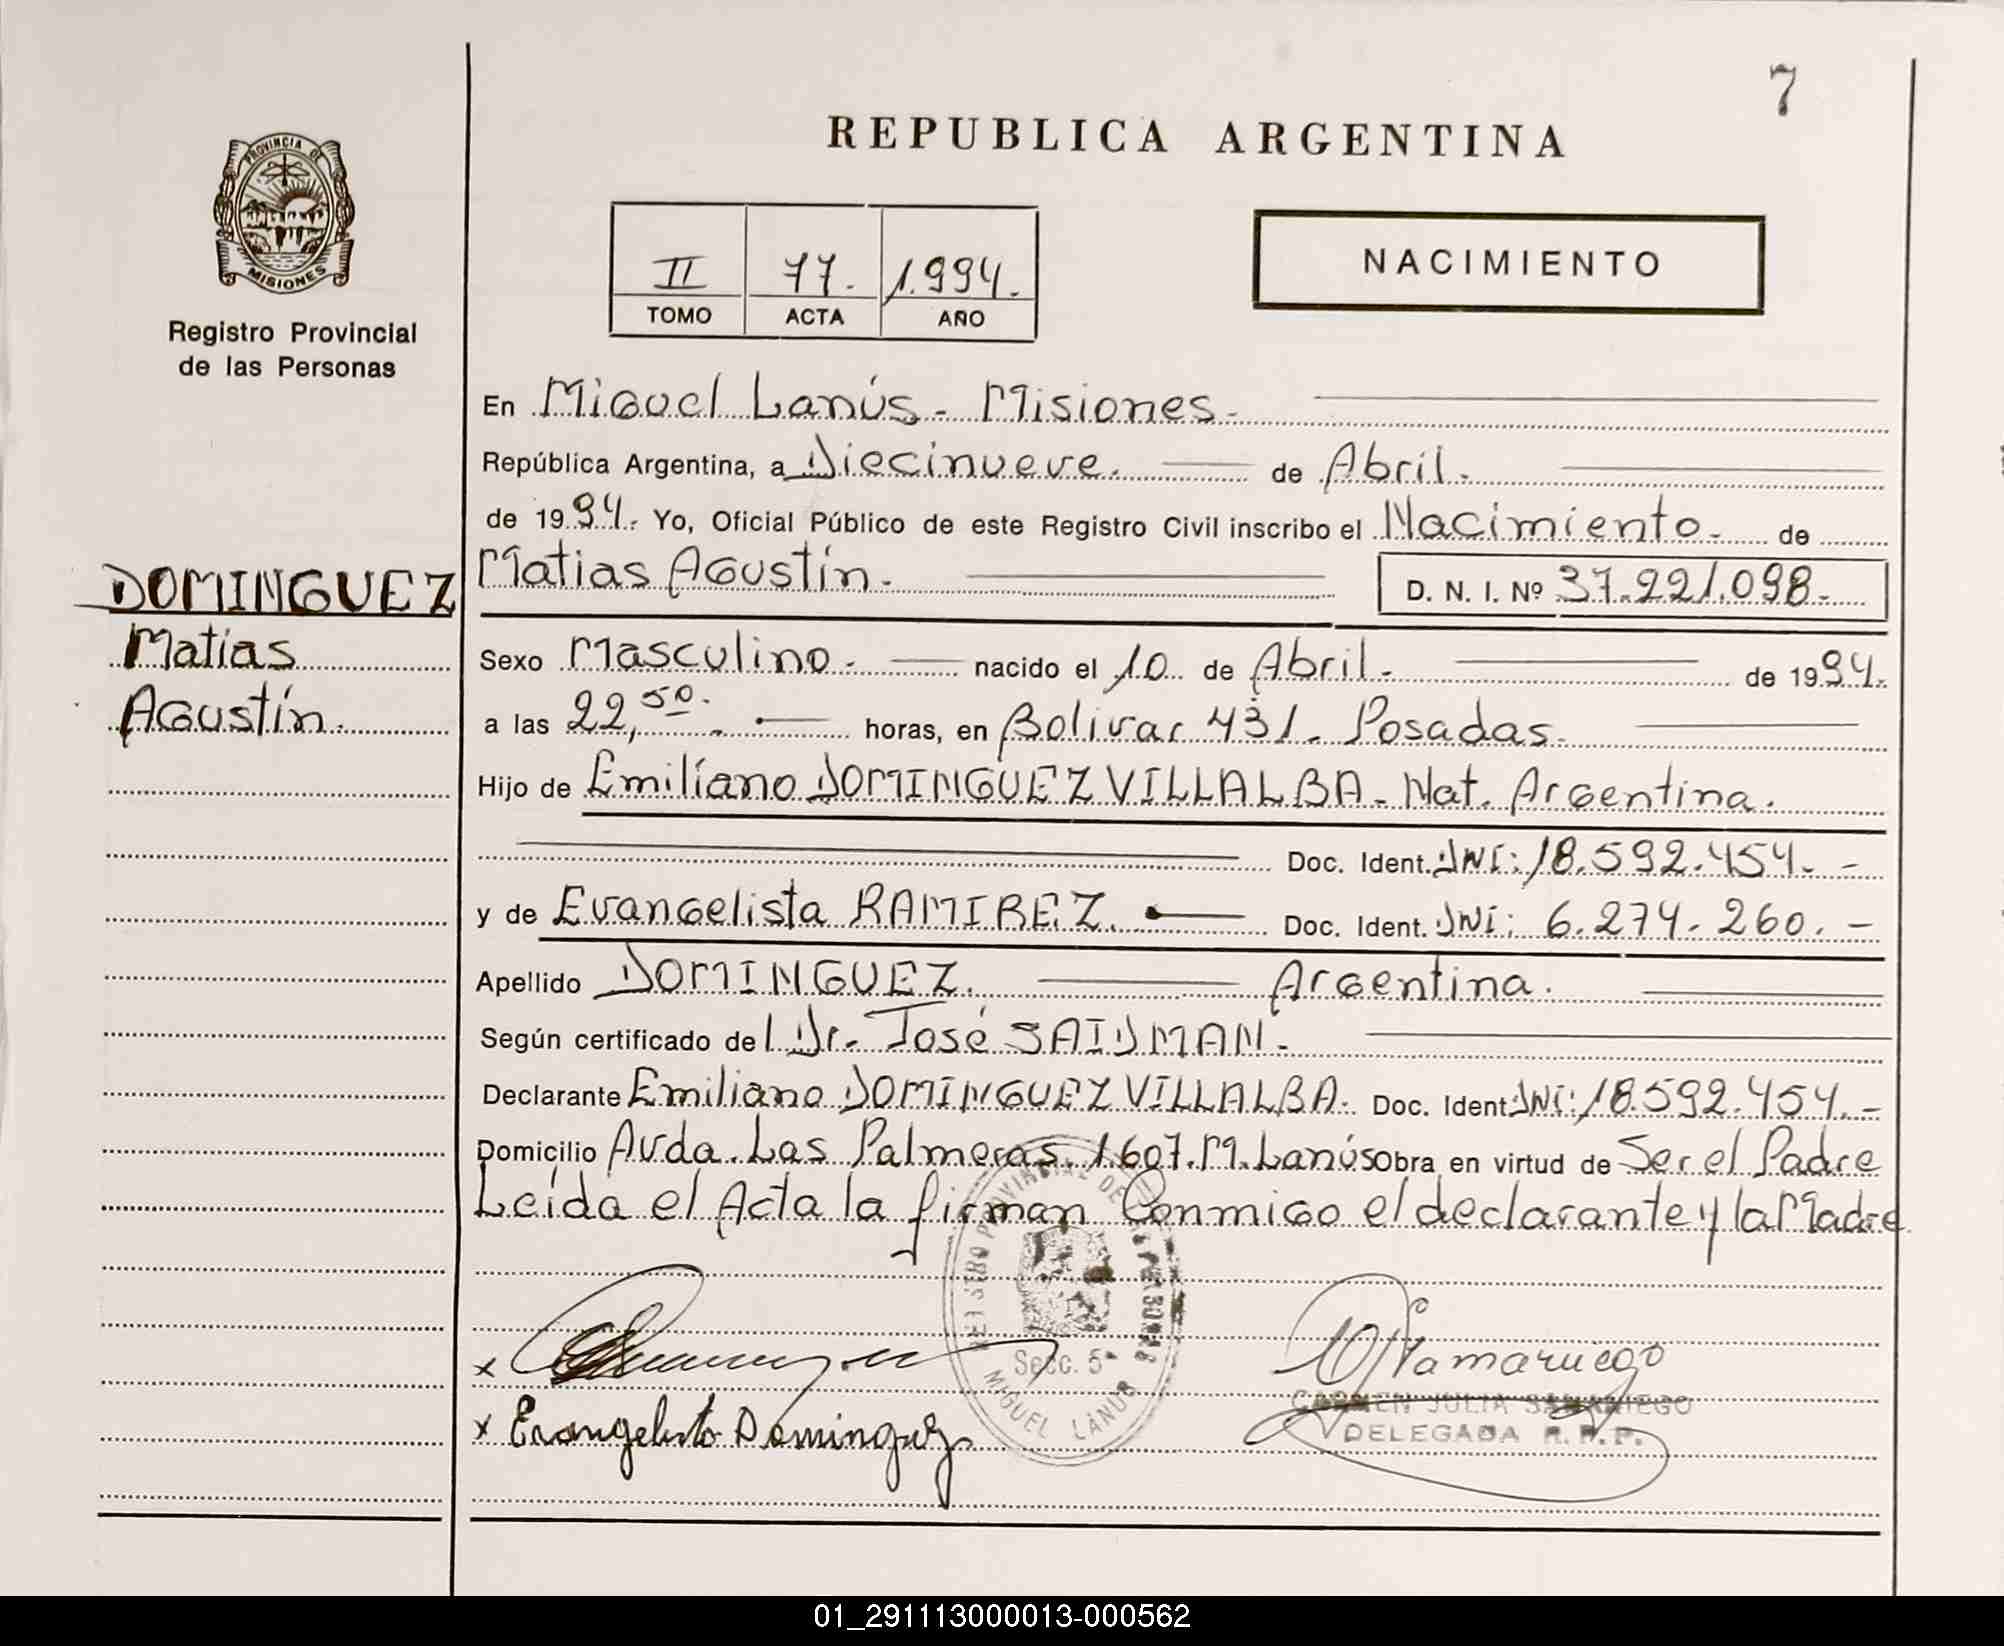 7
REPUBLICA ARGENTINA
PROVINCIA DE
MISIONES
Registro Provincial
de las Personas
II 77. 1.994.
TOMO ACTA AÑO
NACIMIENTO
En Miguel Lanús - Misiones.
República Argentina, a Diecinueve. de Abril.
de 1994. Yo, Oficial Público de este Registro Civil inscribo el Nacimiento. de
DOMINGUEZ
Matias
Agustín.
Matias Agustín. D. N. I. Nº 37.221.098.
Sexo Masculino. nacido el 10 de Abril. de 1994.
a las 22,50. horas, en Bolivar 431. Posadas.
Hijo de Emiliano DOMINGUEZ VILLALBA. Nat. Argentina.
Doc. Ident. DNI: 18.592.454. -
y de Evangelista RAMIREZ. Doc. Ident. DNI: 6.274.260. -
Apellido DOMINGUEZ. Argentina.
Según certificado del Dr. José SAIDMAN.
Declarante Emiliano DOMINGUEZ VILLALBA. Doc. Ident DNI: 18.592.454. -
Domicilio Avda. Las Palmeras. 1.607. M. Lanús Obra en virtud de Ser el Padre
Leída el Acta la firman Conmigo el declarante y la Madre
REGISTRO PROVINCIAL DE LAS PERSONAS
Secc. 5ª
MIGUEL LANUS
x
x Evangelista Dominguez
CARMEN JULIA SAMANIEGO
DELEGADA R.P.P.
01_291113000013-000562